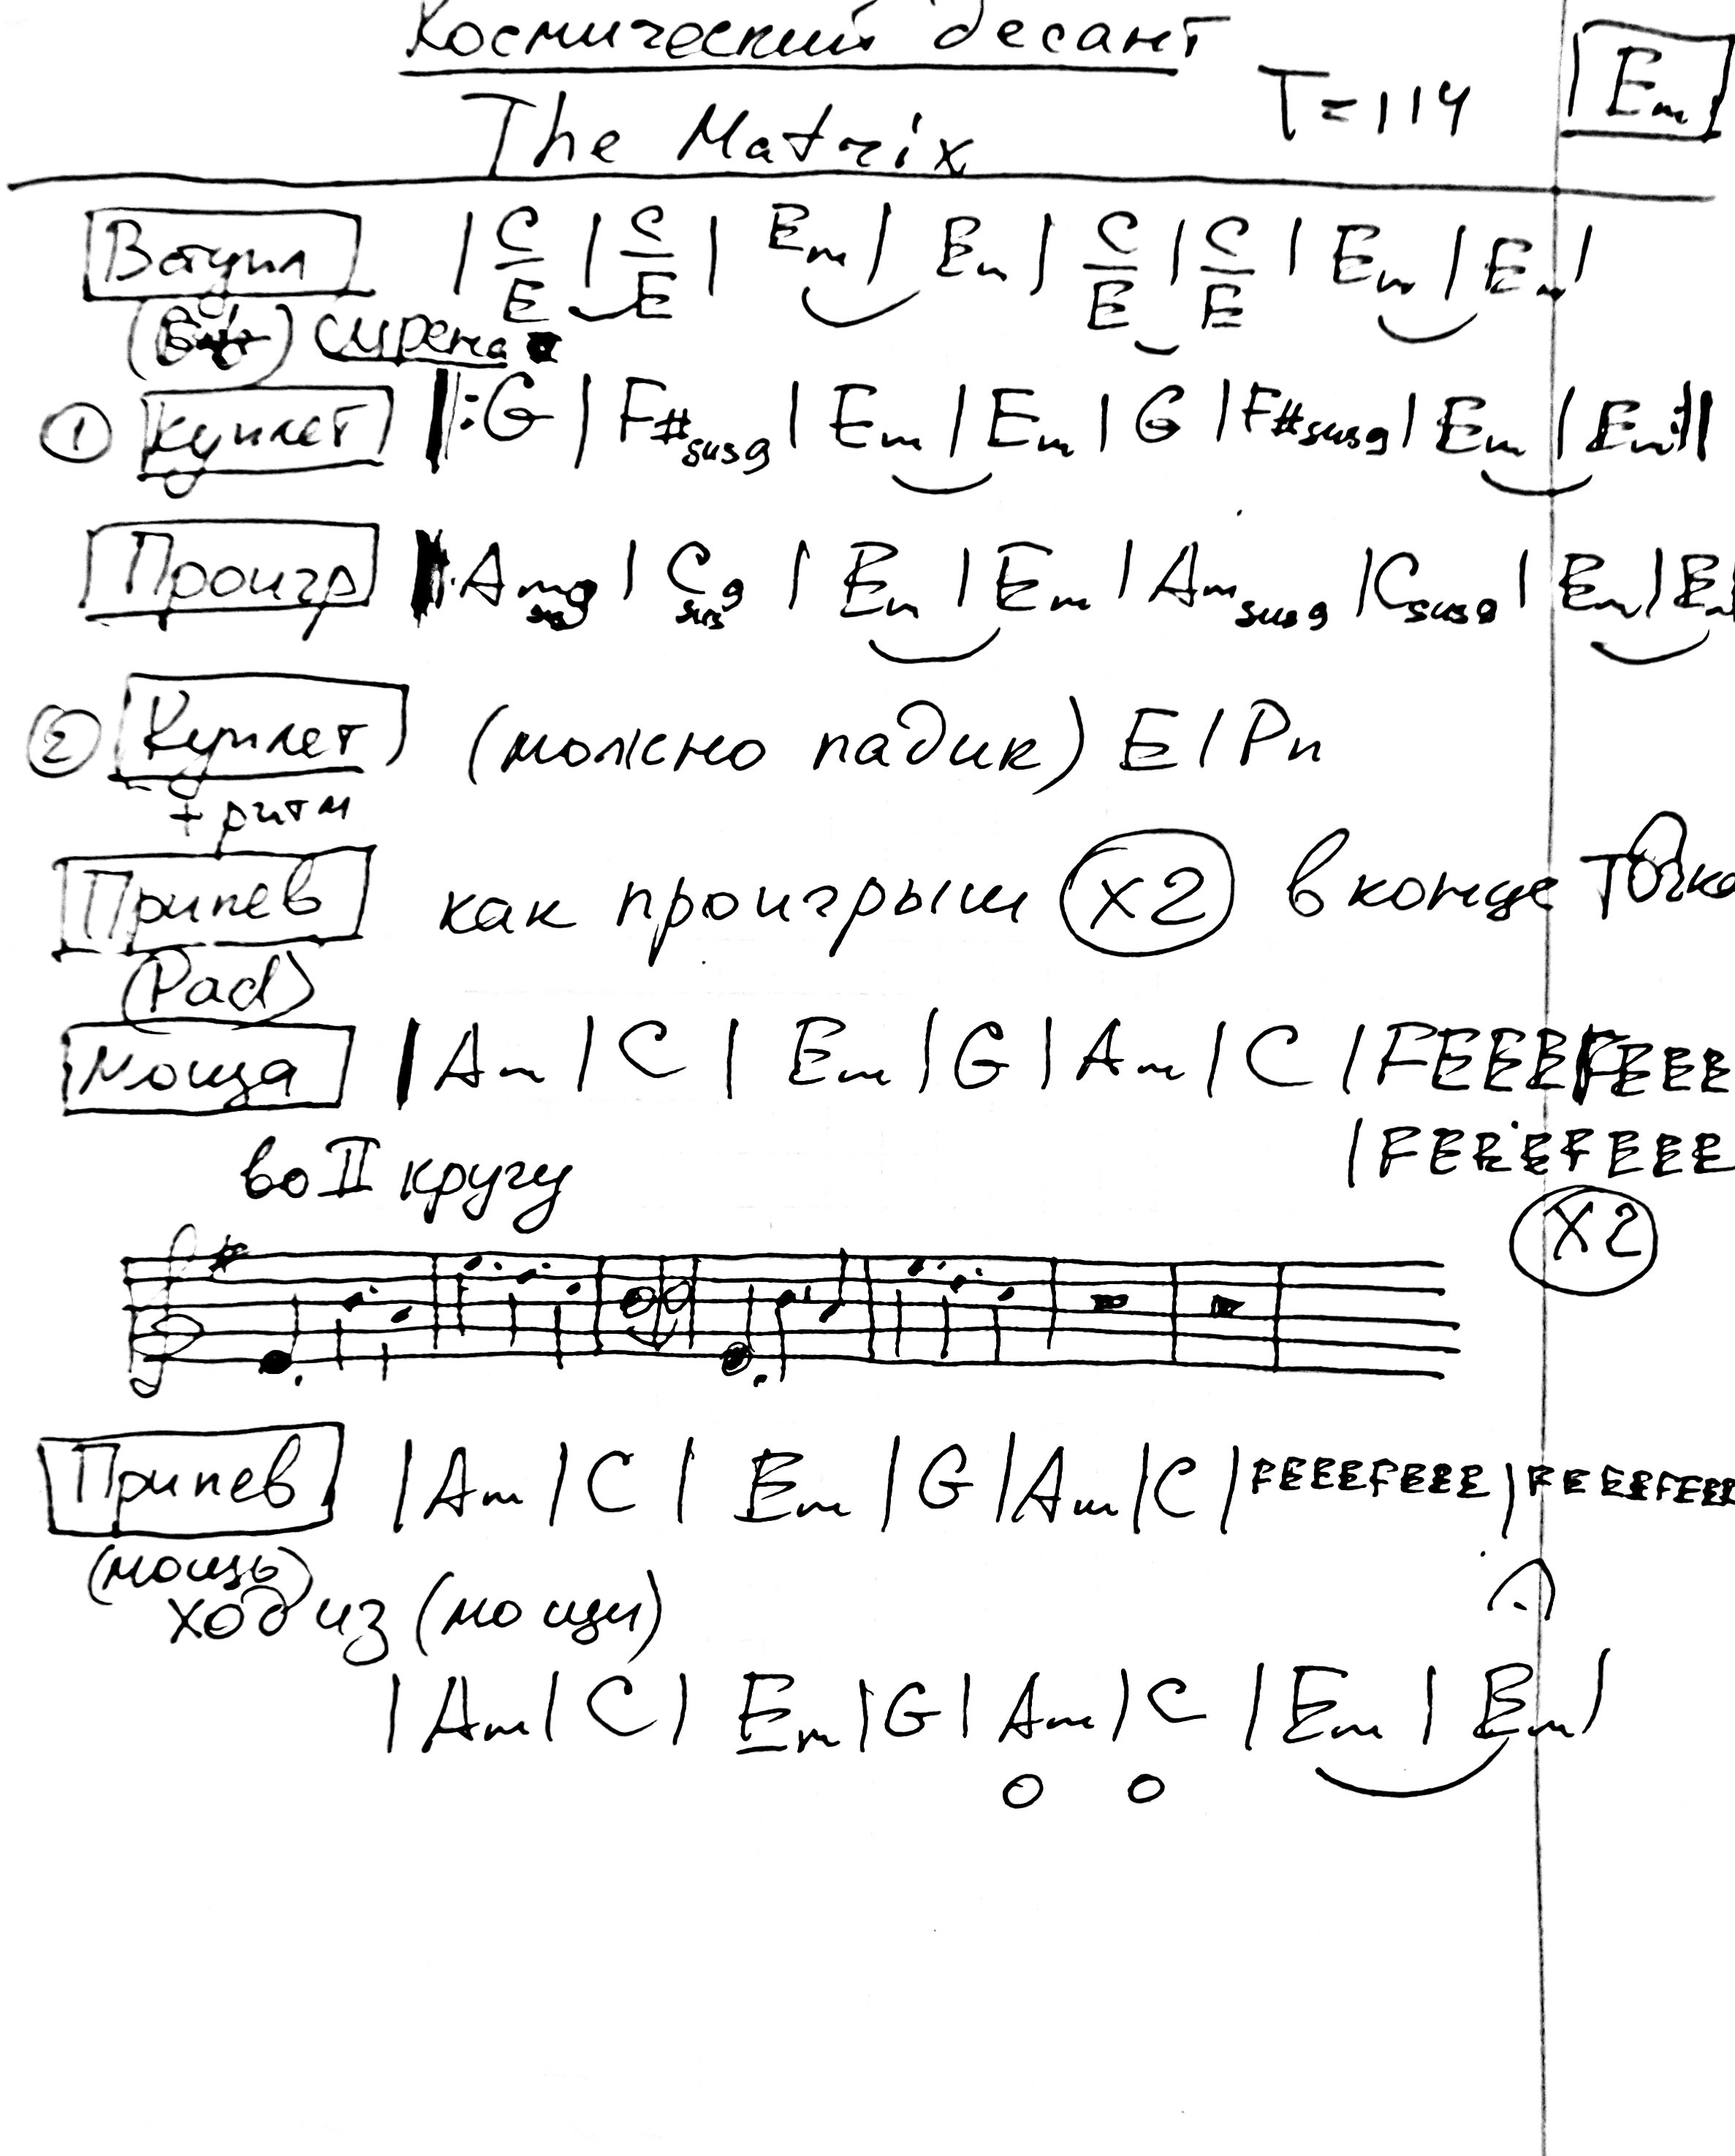 Космический десант
The Matrix T=114 Em
Вступл | C/E | C/E | Em | Em | C/E | C/E | Em | Em |
сирена
① Куплет ‖: G | F#sus9 | Em | Em | G | F#sus9 | Em | Em :‖
Проигр ‖: Am sus9 | C sus9 | Em | Em | Am sus9 | C sus9 | Em | Em
② Куплет (можно падик) E|Pn
+ ритм
Припев как проигрыш x2 в конце точка
(Pad)
Моща | Am | C | Em | G | Am | C | FEEEFEEE
| FEEEFEEE
во II кругу
x2
Припев | Am | C | Em | G | Am | C | FEEEFEEE | FEEEFEEE
(мощь)
ход из (мощи)
| Am | C | Em | G | Am | C | Em | Em |